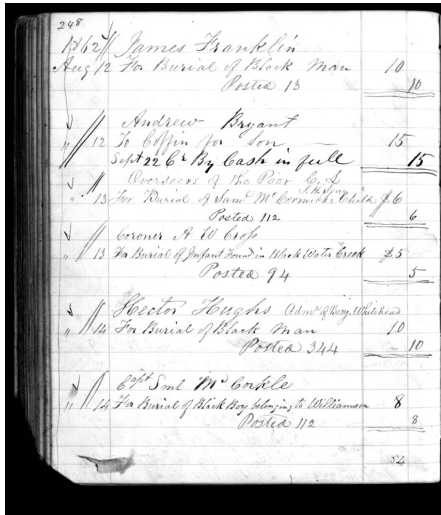 248
1862 James Franklin
Aug 12 For Burial of Black Man 10
Posted 13 10
Andrew Bryant
" 12 To Coffin for Son 15
Sept 22 Cr By Cash in full 15
Overseers of the Poor C. S.
" 13 For Burial of Saml McCormick's Child $6
Posted 112 6
Coroner A W Cross
" 13 For Burial of Infant Found in Black Water Creek $5
Posted 94 5
Hector Hughs Admr of Benj. Whitehead
" 14 For Burial of Black Man 10
Posted 344 10
Capt Saml McCorkle
" 14 For Burial of Black Boy belonging to Williamson 8
Posted 112 8
54